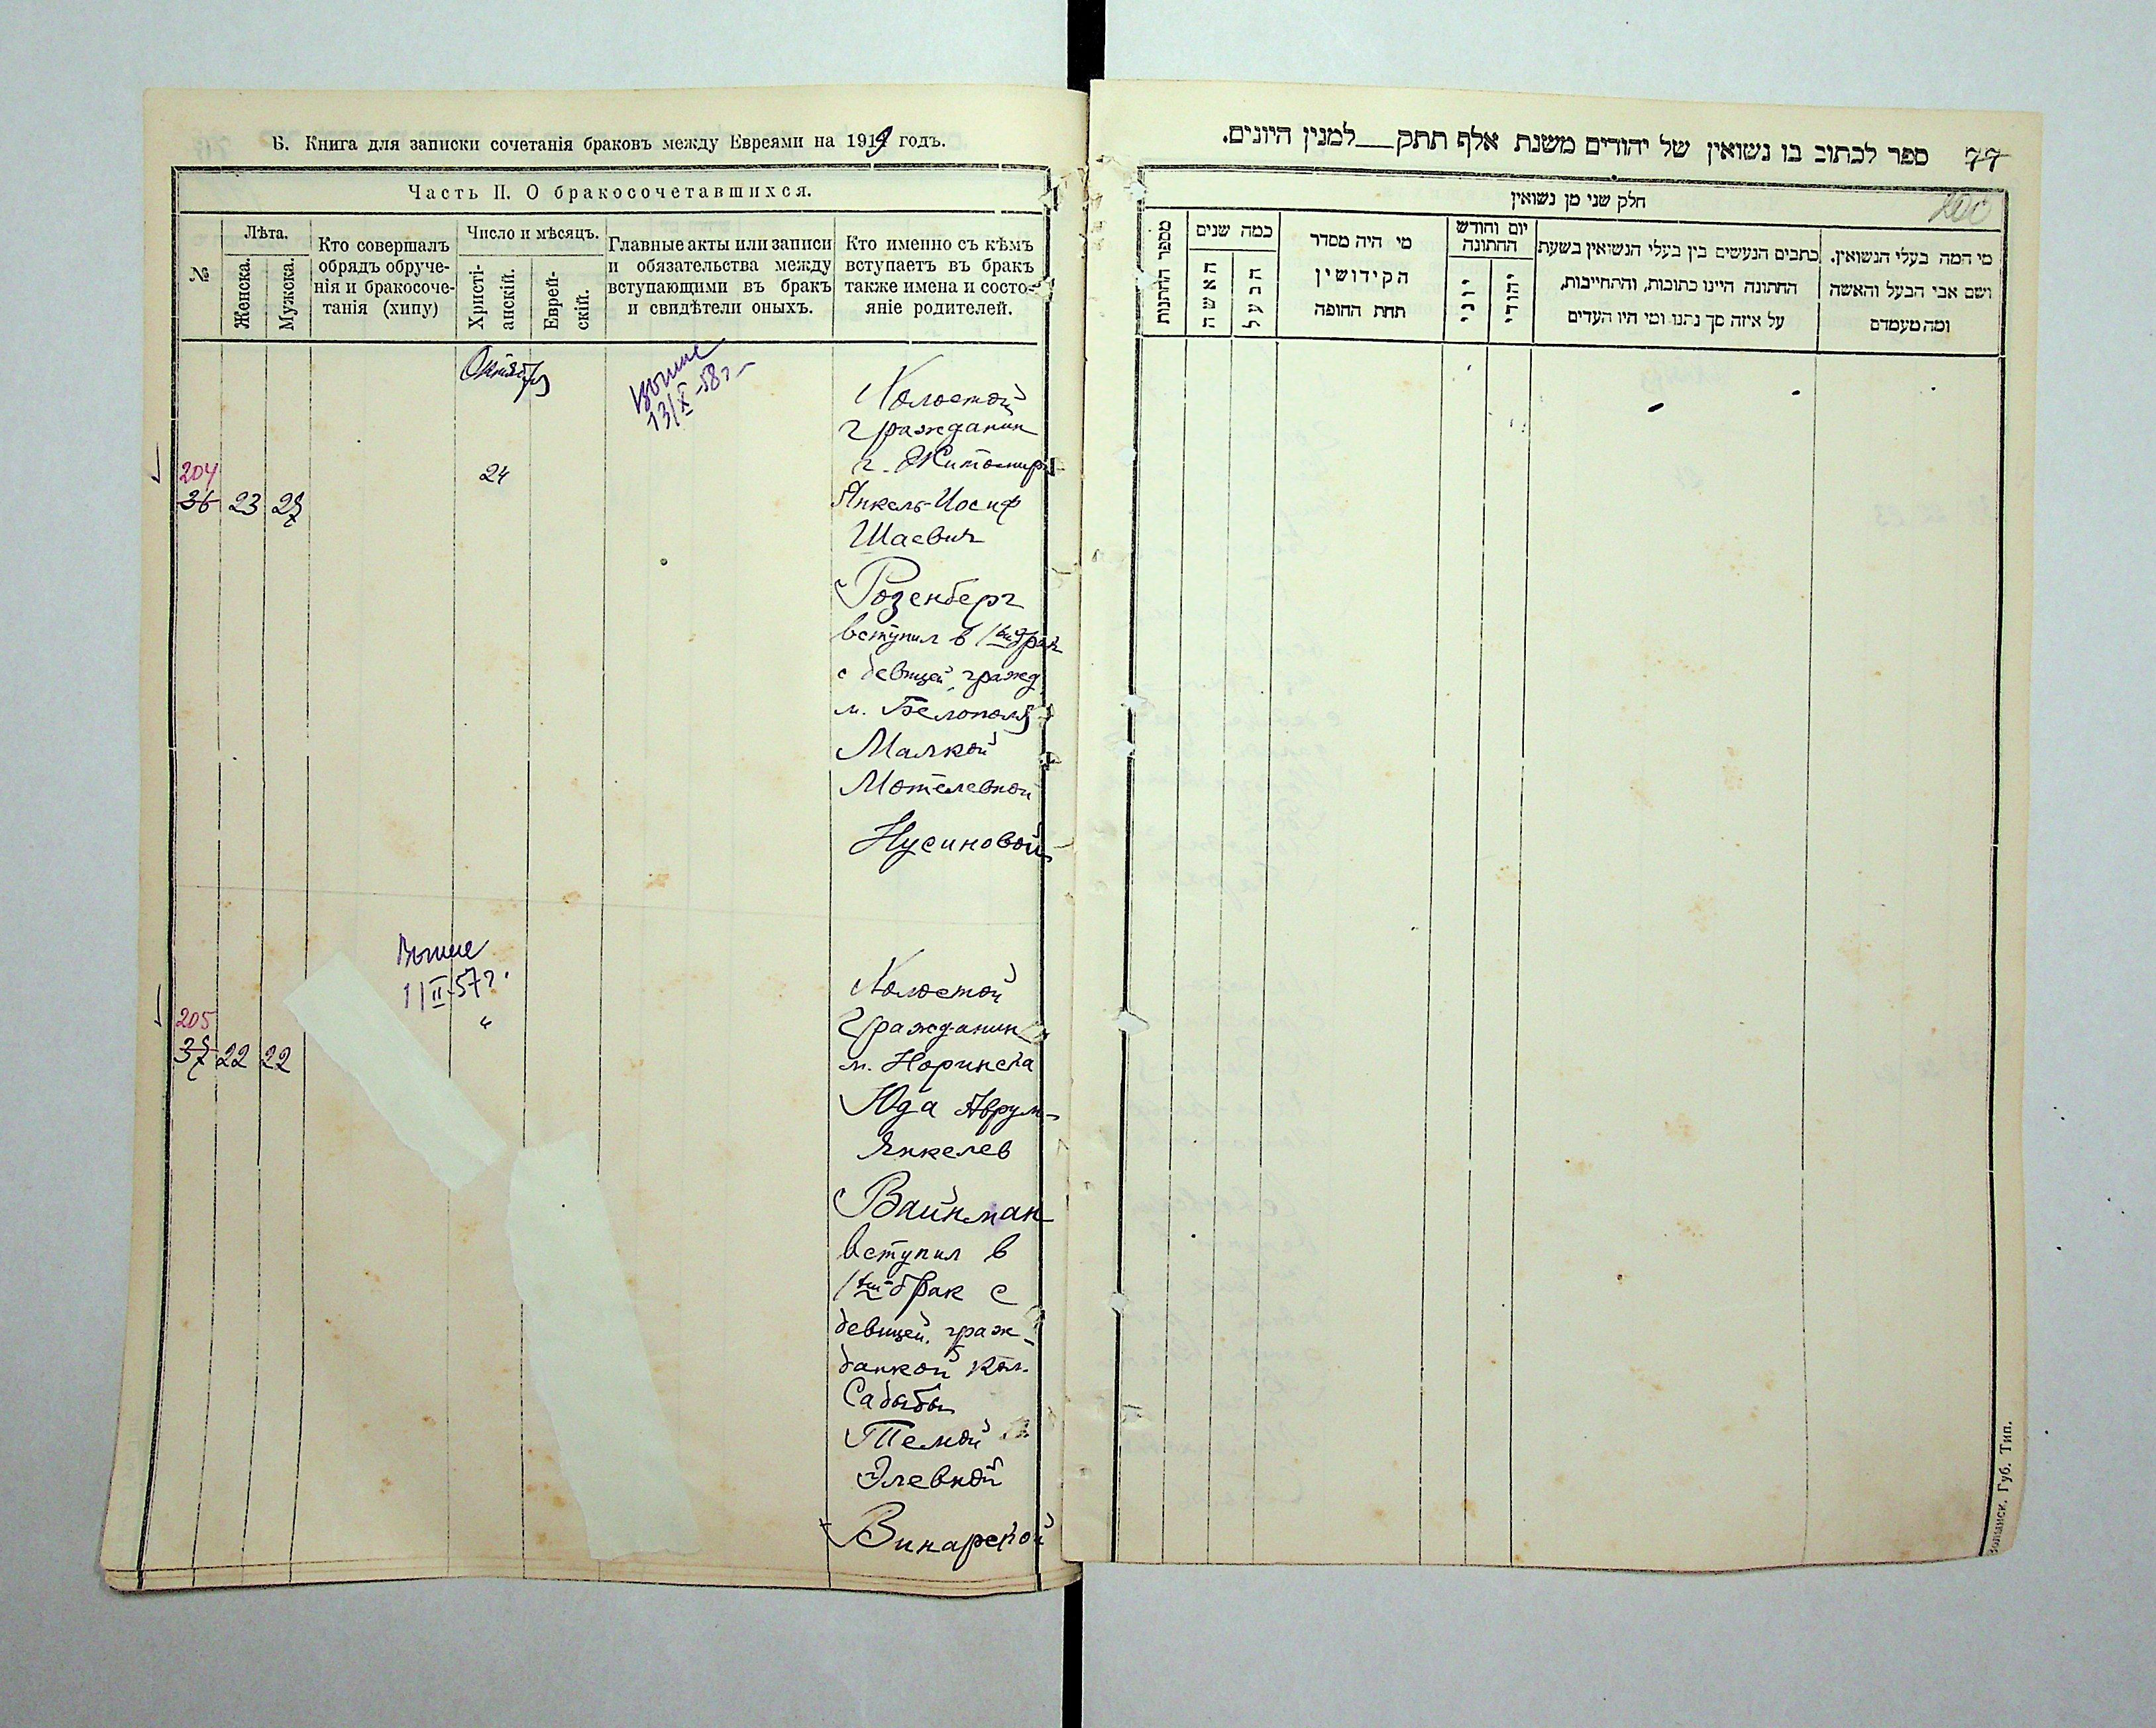 Б. Книга для записки сочетанія браковъ между Евреями на 1919 годъ.
Часть II. О бракосочетавшихся.
№
Лѣта.
Женска.
Мужска.
Кто совершалъ
обрядъ обруче-
нія и бракосоче-
танія (хипу)
Число и мѣсяцъ.
Христі-
анскій.
Еврей-
скій.
Главные акты или записи
и обязательства между
вступающими въ бракъ
и свидѣтели оныхъ.
Кто именно съ кѣмъ
вступаетъ въ бракъ
также имена и состо-
яніе родителей.
Октября
13/X-58г-
204
36 23 27
24
Холостой
гражданин
г. Житомира
Янкель-Иосиф
Шаевич
Розенберг
вступил в 1вый брак
с девицей, гражд.
м. Белополя
Малкой
Мотелевной
Нусиновой
1/II-57г.
205
37 22 22
"
Холостой
гражданин
м. Норинска
Юда Аврум-
Янкелев
Вайнман
вступил в
1вый брак с
девицей, граж-
данкой кол.
Садыбы
Темой
Элевной
Винарской
77 ספר לכתוב בו נשואין של יהודים משנת אלף תתק___למנין היונים.
חלק שני מן נשואין
מספר החתונות
כמה שנים
האשה
הבעל
מי היה מסדר
הקידושין
תחת החופה
יום וחודש
החתונה
יוני
יהודי
כתבים הנעשים בין בעלי הנשואין בשעת
החתונה היינו כתובות, והתחייבות,
על איזה סך נתנו ומי היו העדים
מי המה בעלי הנשואין.
ושם אבי הבעל והאשה
ומה מעמדם
Волынск. Губ. Тип.